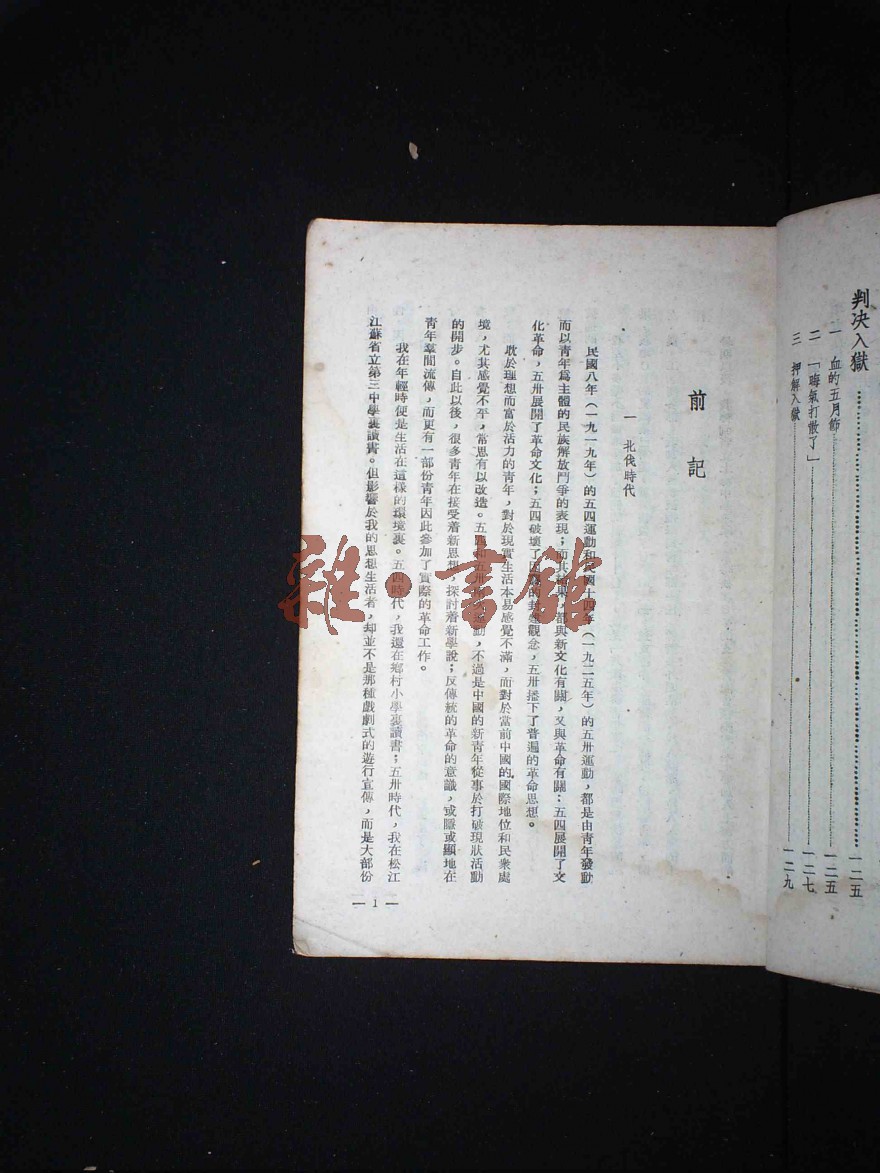 判決入獄……一二五
一 血的五月節……一二五
二 「晦氣打散了」……一二七
三 押解入獄……一二九
前記
一 北伐時代
民國八年(一九一九年)的五四運動和民國十四年(一九二五年)的五卅運動,都是由青年發動
而以青年爲主體的民族解放鬥爭的表現;而其結果,都與新文化有關,又與革命有關:五四展開了文
化革命,五卅展開了革命文化;五四破壞了的封建觀念,五卅播下了普遍的革命思想。
耽於理想而富於活力的青年,對於現實生活本易感覺不滿,而對於當前中國的國際地位和民衆處
境,尤其感覺不平,常思有以改造。五四和五卅運動,不過是中國的新青年從事於打破現狀活動
的開步。自此以後,很多青年在接受着新思想,探討着新學說;反傳統的革命的意識,或隱或顯地在
青年羣間流傳,而更有一部份青年因此參加了實際的革命工作。
我在年輕時便是生活在這樣的環境裏。五四時代,我還在鄉村小學裏讀書;五卅時代,我在松江
江蘇省立第三中學裏讀書。但影響於我的思想生活者,却並不是那種戲劇式的遊行宣傳,而是大部份
— 1 —
雜·書館